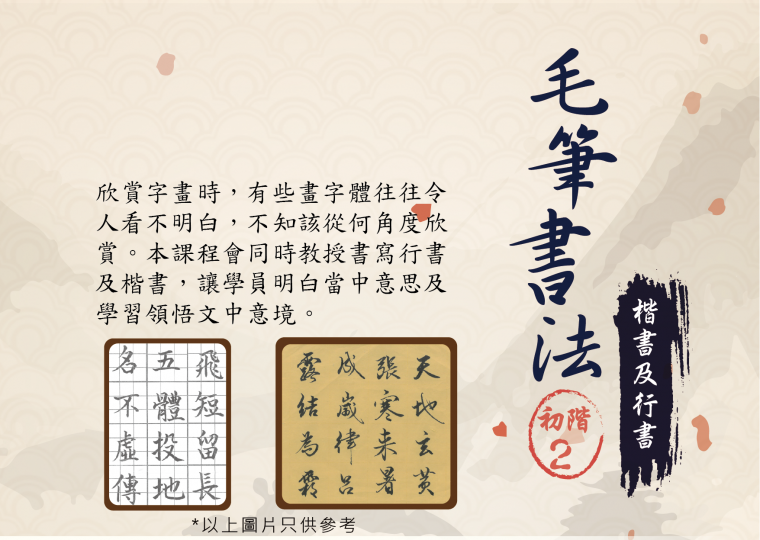 毛筆書法
初階
2
楷書及行書
欣賞字畫時，有些畫字體往往令
人看不明白，不知該從何角度欣
賞。本課程會同時教授書寫行書
及楷書，讓學員明白當中意思及
學習領悟文中意境。
飛短留長
五體投地
名不虛傳
天地玄黃
張寒来暑
成歲律呂
露結為霜
*以上圖片只供參考